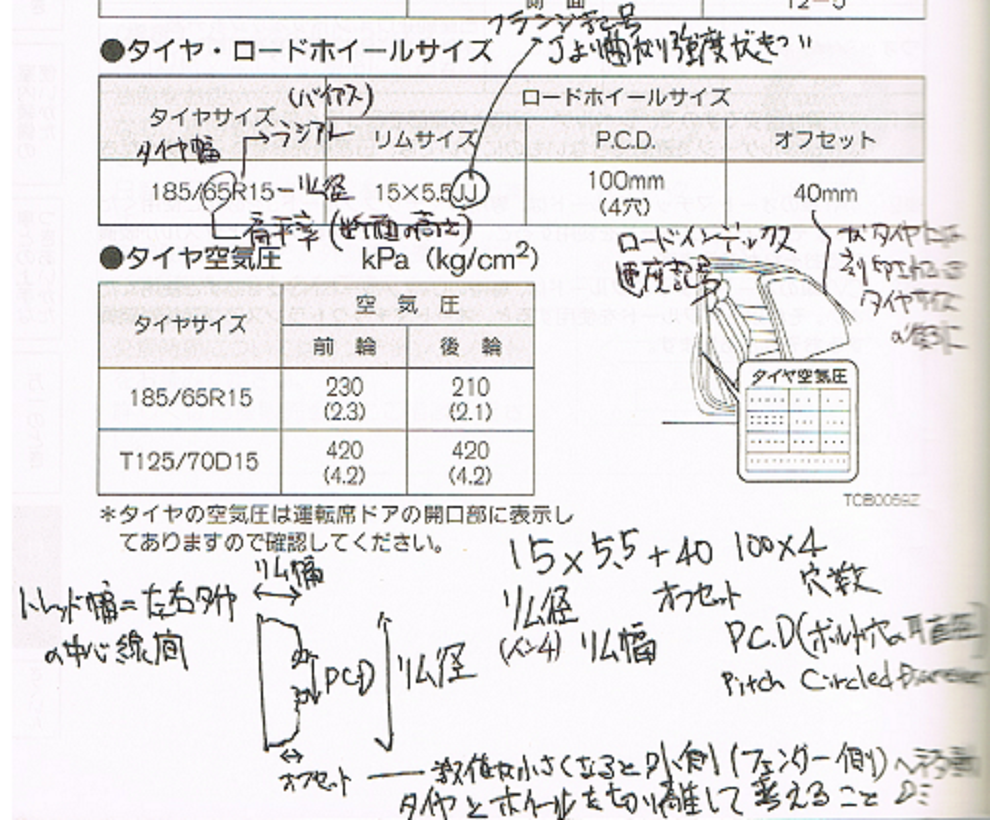 12-5
フランジ記号
●タイヤ・ロードホイールサイズ
Jより曲がり強度
(バイアス)
ロードホイールサイズ
タイヤサイズ
→ラジアル
タイヤ幅
リムサイズ
P.C.D.
オフセット
185/65R15
リム径
15×5.5JJ
100mm
(4穴)
40mm
扁平率(断面高さ)
ロードインデックス
速度記号
タイヤには
タイヤサイズ
●タイヤ空気圧 kPa(kg/cm²)
タイヤサイズ
空気圧
前輪
後輪
185/65R15
230
(2.3)
210
(2.1)
T125/70D15
420
(4.2)
420
(4.2)
タイヤ空気圧
TCB0059Z
*タイヤの空気圧は運転席ドアの開口部に表示し
てありますので確認してください。
15×5.5+40 100×4
リム径
(インチ)
リム幅
オフセット
穴数
P.C.D(ボルト穴の直径)
Pitch Circled Diameter
トレッド幅=左右タイヤ
の中心線間
リム幅
PCD
リム径
オフセット
数値が小さくなると外側(フェンダー側)へ移動
タイヤとホイールを切り離して考えること